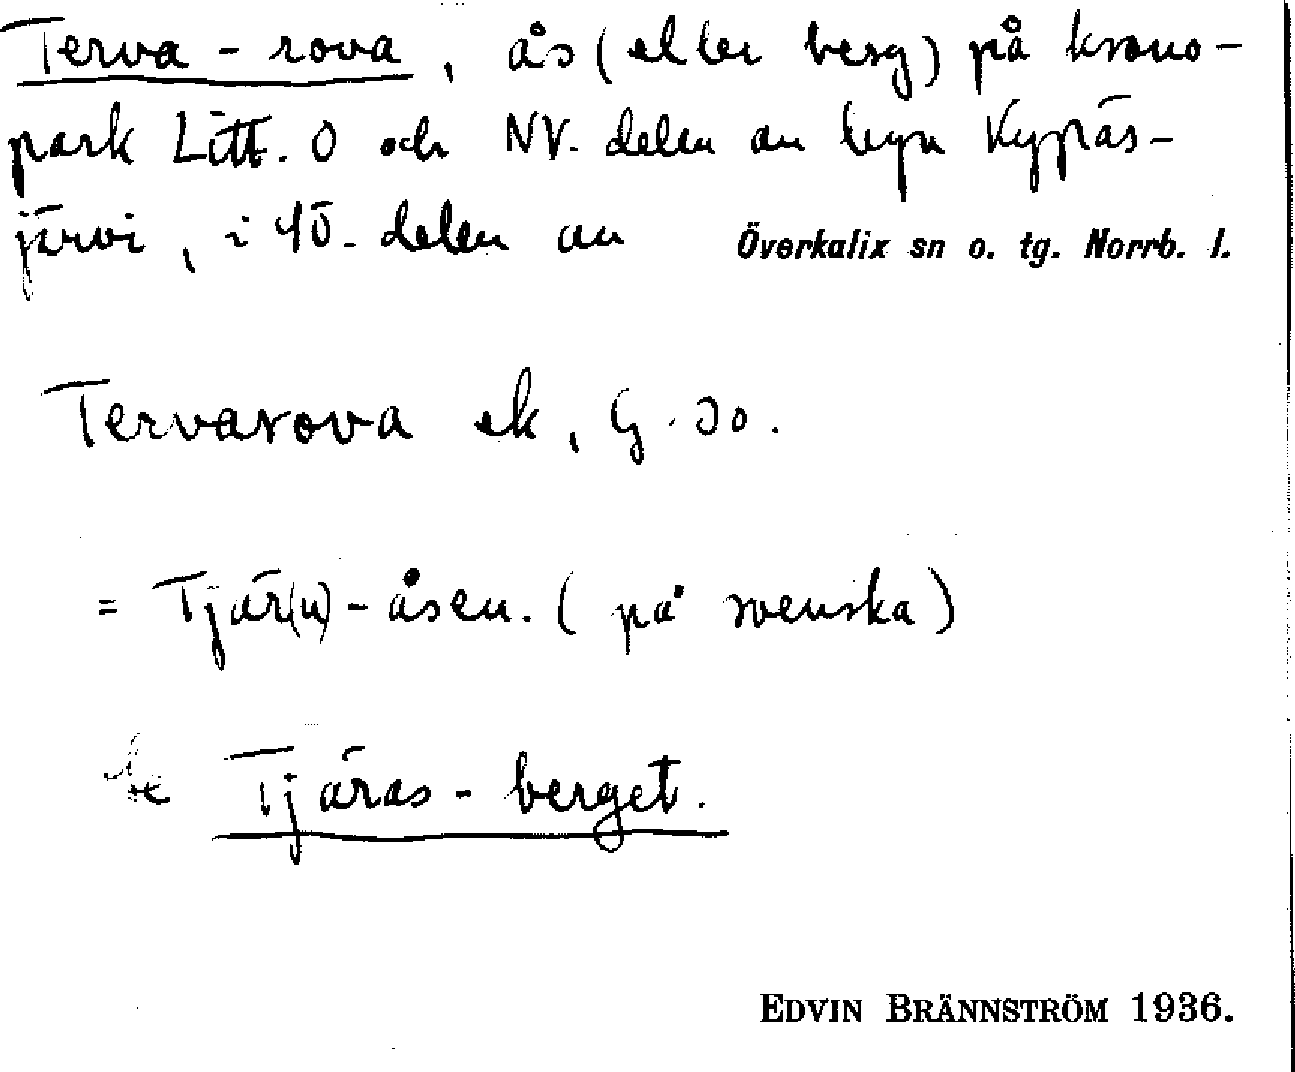 Terva - rova, ås (eller berg) på krono-
park Litt. O och NV. delen av byn Kypäs-
järvi, i delen av Överkalix sn o. tg. Norrb. l.
Tervarova ek, G.
= Tjär(n) - åsen. (på svenska)
Se Tjäras - berget.
EDVIN BRÄNNSTRÖM 1936.